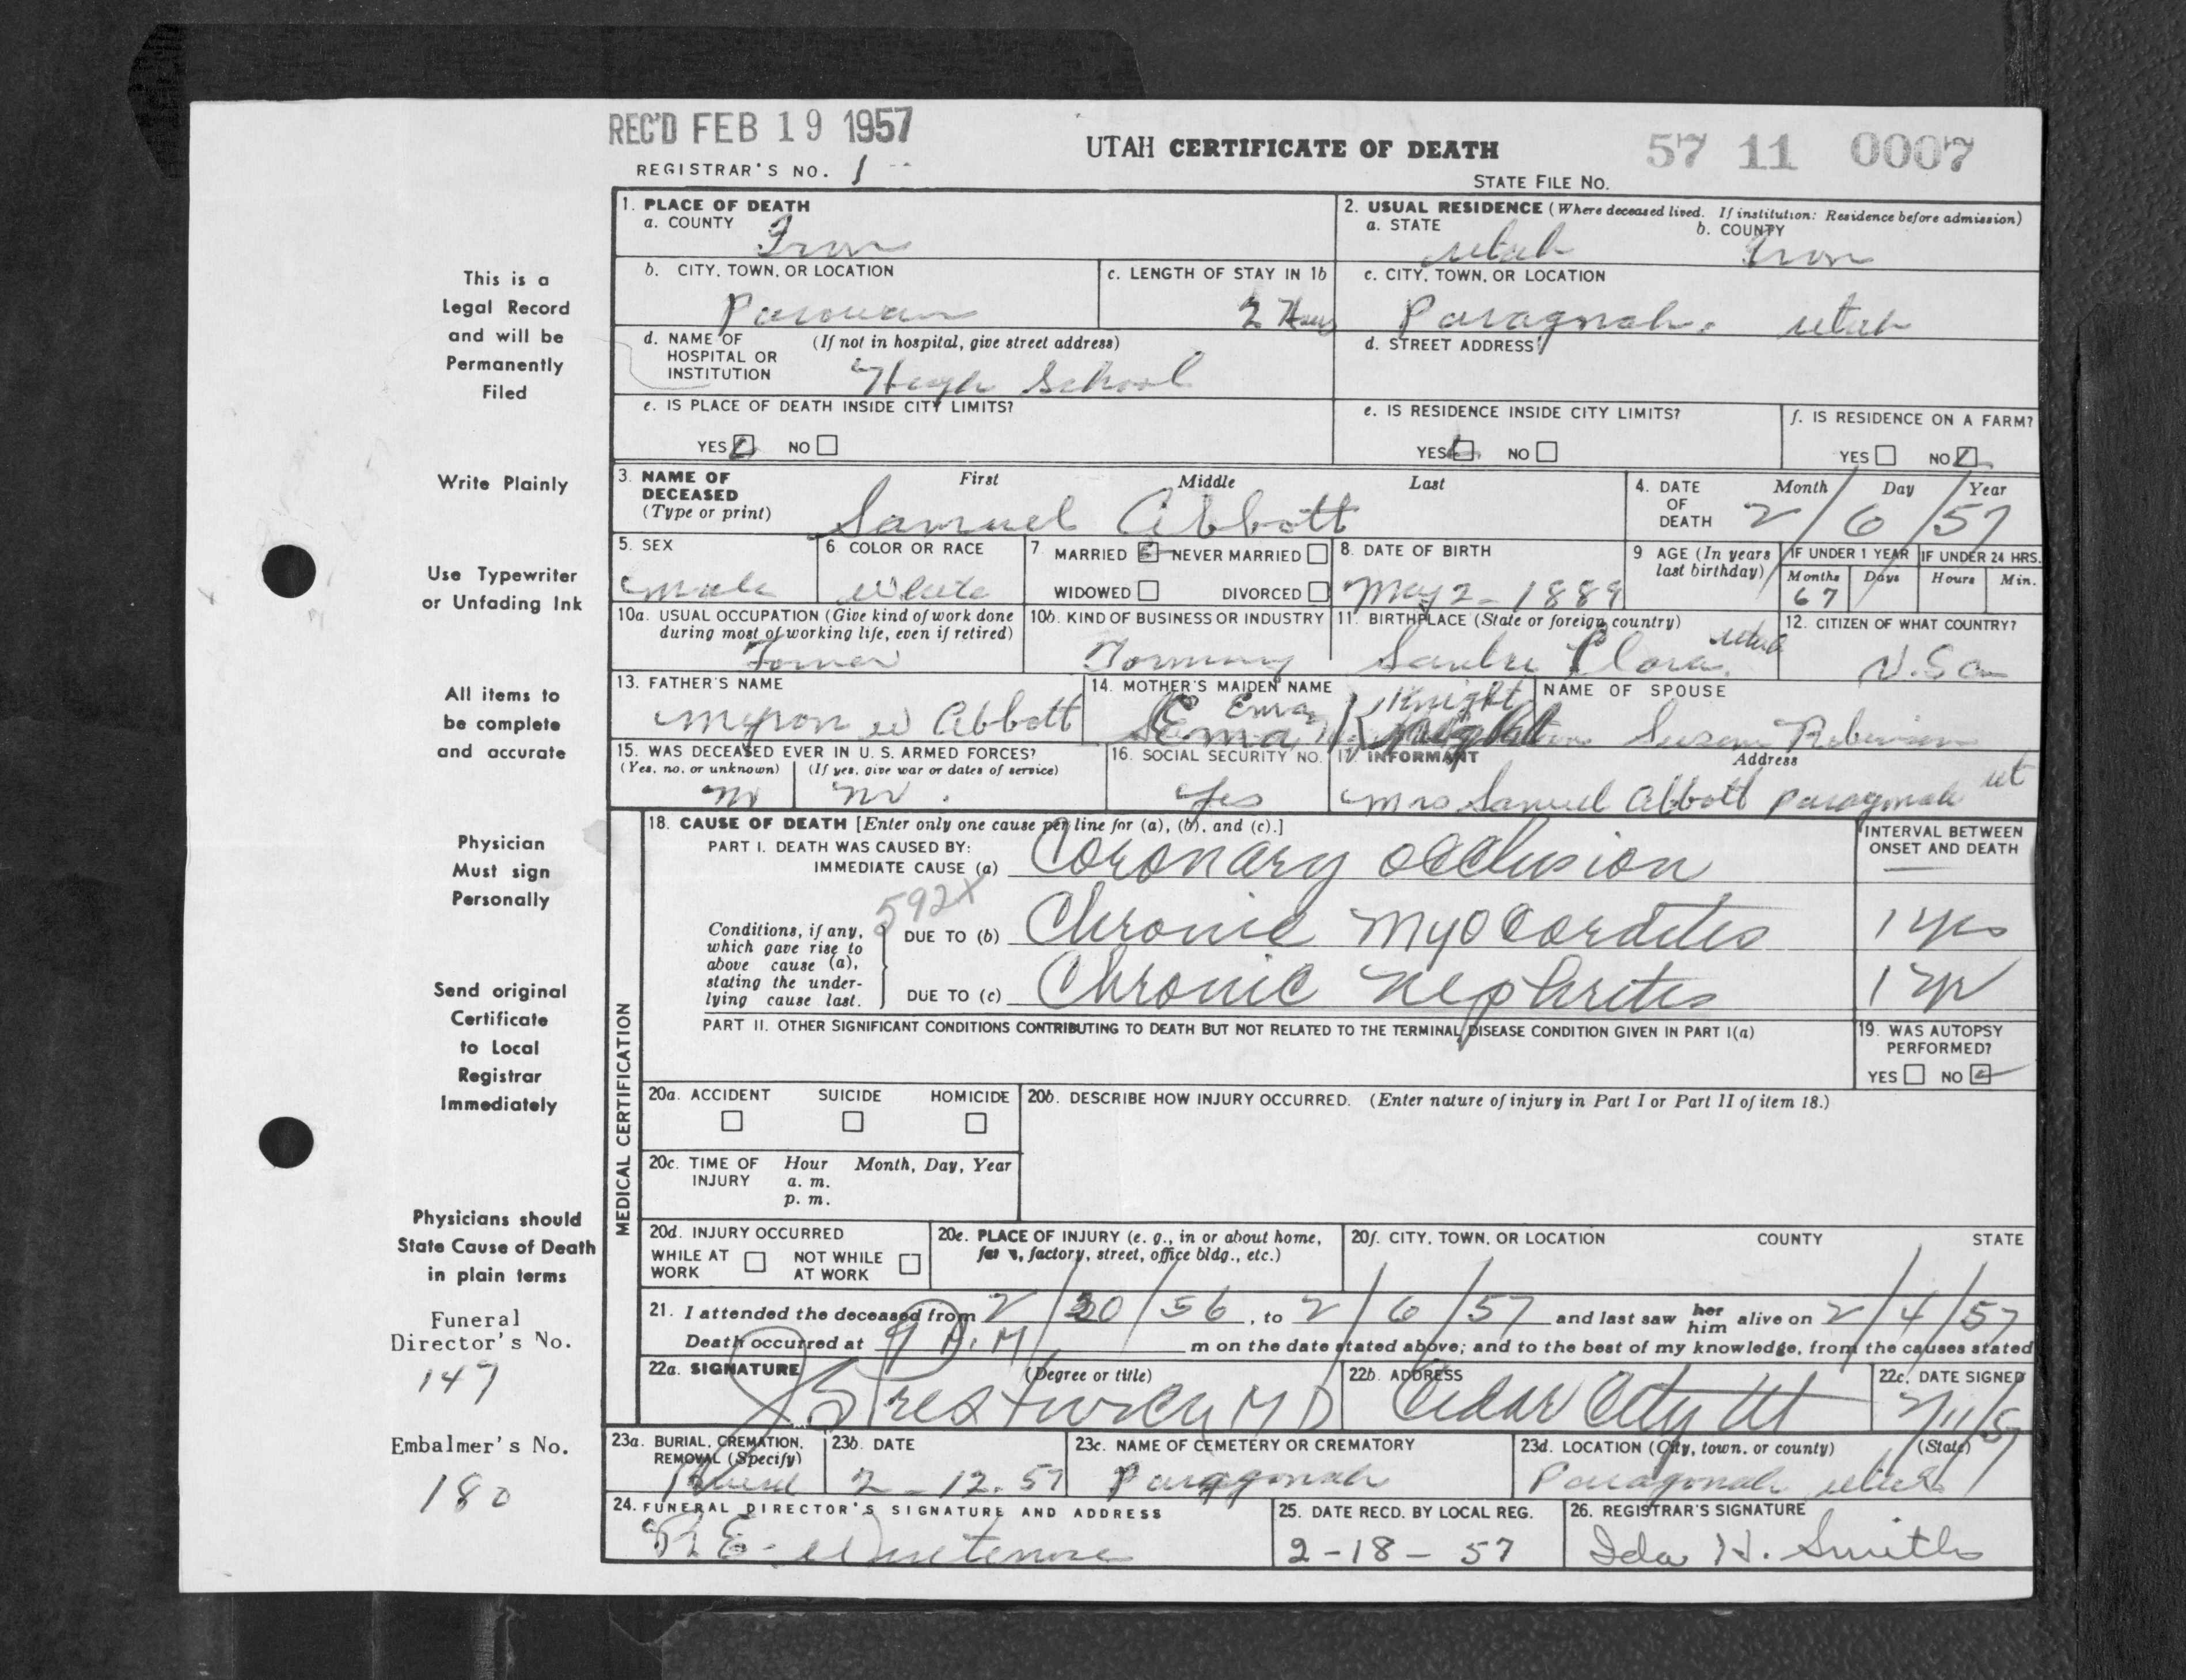 REC'D FEB 19 1957
UTAH CERTIFICATE OF DEATH
57 11 0007
REGISTRAR'S NO. 1
STATE FILE NO.
This is a
Legal Record
and will be
Permanently
Filed
Write Plainly
Use Typewriter
or Unfading Ink
All items to
be complete
and accurate
Physician
Must sign
Personally
Send original
Certificate
to Local
Registrar
Immediately
Physicians should
State Cause of Death
in plain terms
Funeral
Director's No.
147
Embalmer's No.
180
1. PLACE OF DEATH
a. COUNTY Iron
2. USUAL RESIDENCE (Where deceased lived. If institution: Residence before admission)
a. STATE Utah b. COUNTY Iron
b. CITY, TOWN, OR LOCATION Parowan
c. LENGTH OF STAY IN 1b 2 Hours
c. CITY, TOWN, OR LOCATION Paragonah, Utah
d. NAME OF HOSPITAL OR INSTITUTION (If not in hospital, give street address) High School
d. STREET ADDRESS
e. IS PLACE OF DEATH INSIDE CITY LIMITS?
YES NO
e. IS RESIDENCE INSIDE CITY LIMITS?
YES NO
f. IS RESIDENCE ON A FARM?
YES NO
3. NAME OF DECEASED (Type or print) First Middle Last
Samuel Abbott
4. DATE OF DEATH Month Day Year
2/6/57
5. SEX male
6. COLOR OR RACE White
7. MARRIED NEVER MARRIED
WIDOWED DIVORCED
8. DATE OF BIRTH May 2 - 1889
9. AGE (In years last birthday)
IF UNDER 1 YEAR IF UNDER 24 HRS.
Months Days Hours Min.
67
10a. USUAL OCCUPATION (Give kind of work done during most of working life, even if retired) Farmer
10b. KIND OF BUSINESS OR INDUSTRY Farming
11. BIRTHPLACE (State or foreign country) Clara, Utah
12. CITIZEN OF WHAT COUNTRY? U.S.a
13. FATHER'S NAME Myron W Abbott
14. MOTHER'S MAIDEN NAME Ema Knight
NAME OF SPOUSE Susan Robinson
15. WAS DECEASED EVER IN U. S. ARMED FORCES?
(Yes, no, or unknown) (If yes, give war or dates of service)
no no.
16. SOCIAL SECURITY NO. yes
17. INFORMANT Address
Mrs Samuel Abbott Paragonah ut
MEDICAL CERTIFICATION
18. CAUSE OF DEATH [Enter only one cause per line for (a), (b), and (c).]
PART I. DEATH WAS CAUSED BY:
IMMEDIATE CAUSE (a) Coronary occlusion
INTERVAL BETWEEN ONSET AND DEATH
592X
Conditions, if any, which gave rise to above cause (a), stating the underlying cause last.
DUE TO (b) Chronic Myocardites 1 yrs
DUE TO (c) Chronic Nephrites 1 yr
PART II. OTHER SIGNIFICANT CONDITIONS CONTRIBUTING TO DEATH BUT NOT RELATED TO THE TERMINAL DISEASE CONDITION GIVEN IN PART I(a)
19. WAS AUTOPSY PERFORMED?
YES NO
20a. ACCIDENT SUICIDE HOMICIDE
20b. DESCRIBE HOW INJURY OCCURRED. (Enter nature of injury in Part I or Part II of item 18.)
20c. TIME OF INJURY Hour Month, Day, Year
a. m.
p. m.
20d. INJURY OCCURRED
WHILE AT WORK NOT WHILE AT WORK
20e. PLACE OF INJURY (e. g., in or about home, farm, factory, street, office bldg., etc.)
20f. CITY, TOWN, OR LOCATION COUNTY STATE
21. I attended the deceased from 2/20/56, to 2/6/57 and last saw her him alive on 2/4/57
Death occurred at 9 P.M m on the date stated above; and to the best of my knowledge, from the causes stated
22a. SIGNATURE (Degree or title) Prestwich M D
22b. ADDRESS Cedar City Ut
22c. DATE SIGNED 2/11/57
23a. BURIAL, CREMATION, REMOVAL (Specify) Burial
23b. DATE 2-12-57
23c. NAME OF CEMETERY OR CREMATORY Paragonah
23d. LOCATION (City, town, or county) (State) Paragonah Utah
24. FUNERAL DIRECTOR'S SIGNATURE AND ADDRESS
R E.
25. DATE RECD. BY LOCAL REG. 2-18-57
26. REGISTRAR'S SIGNATURE Ida H. Smith